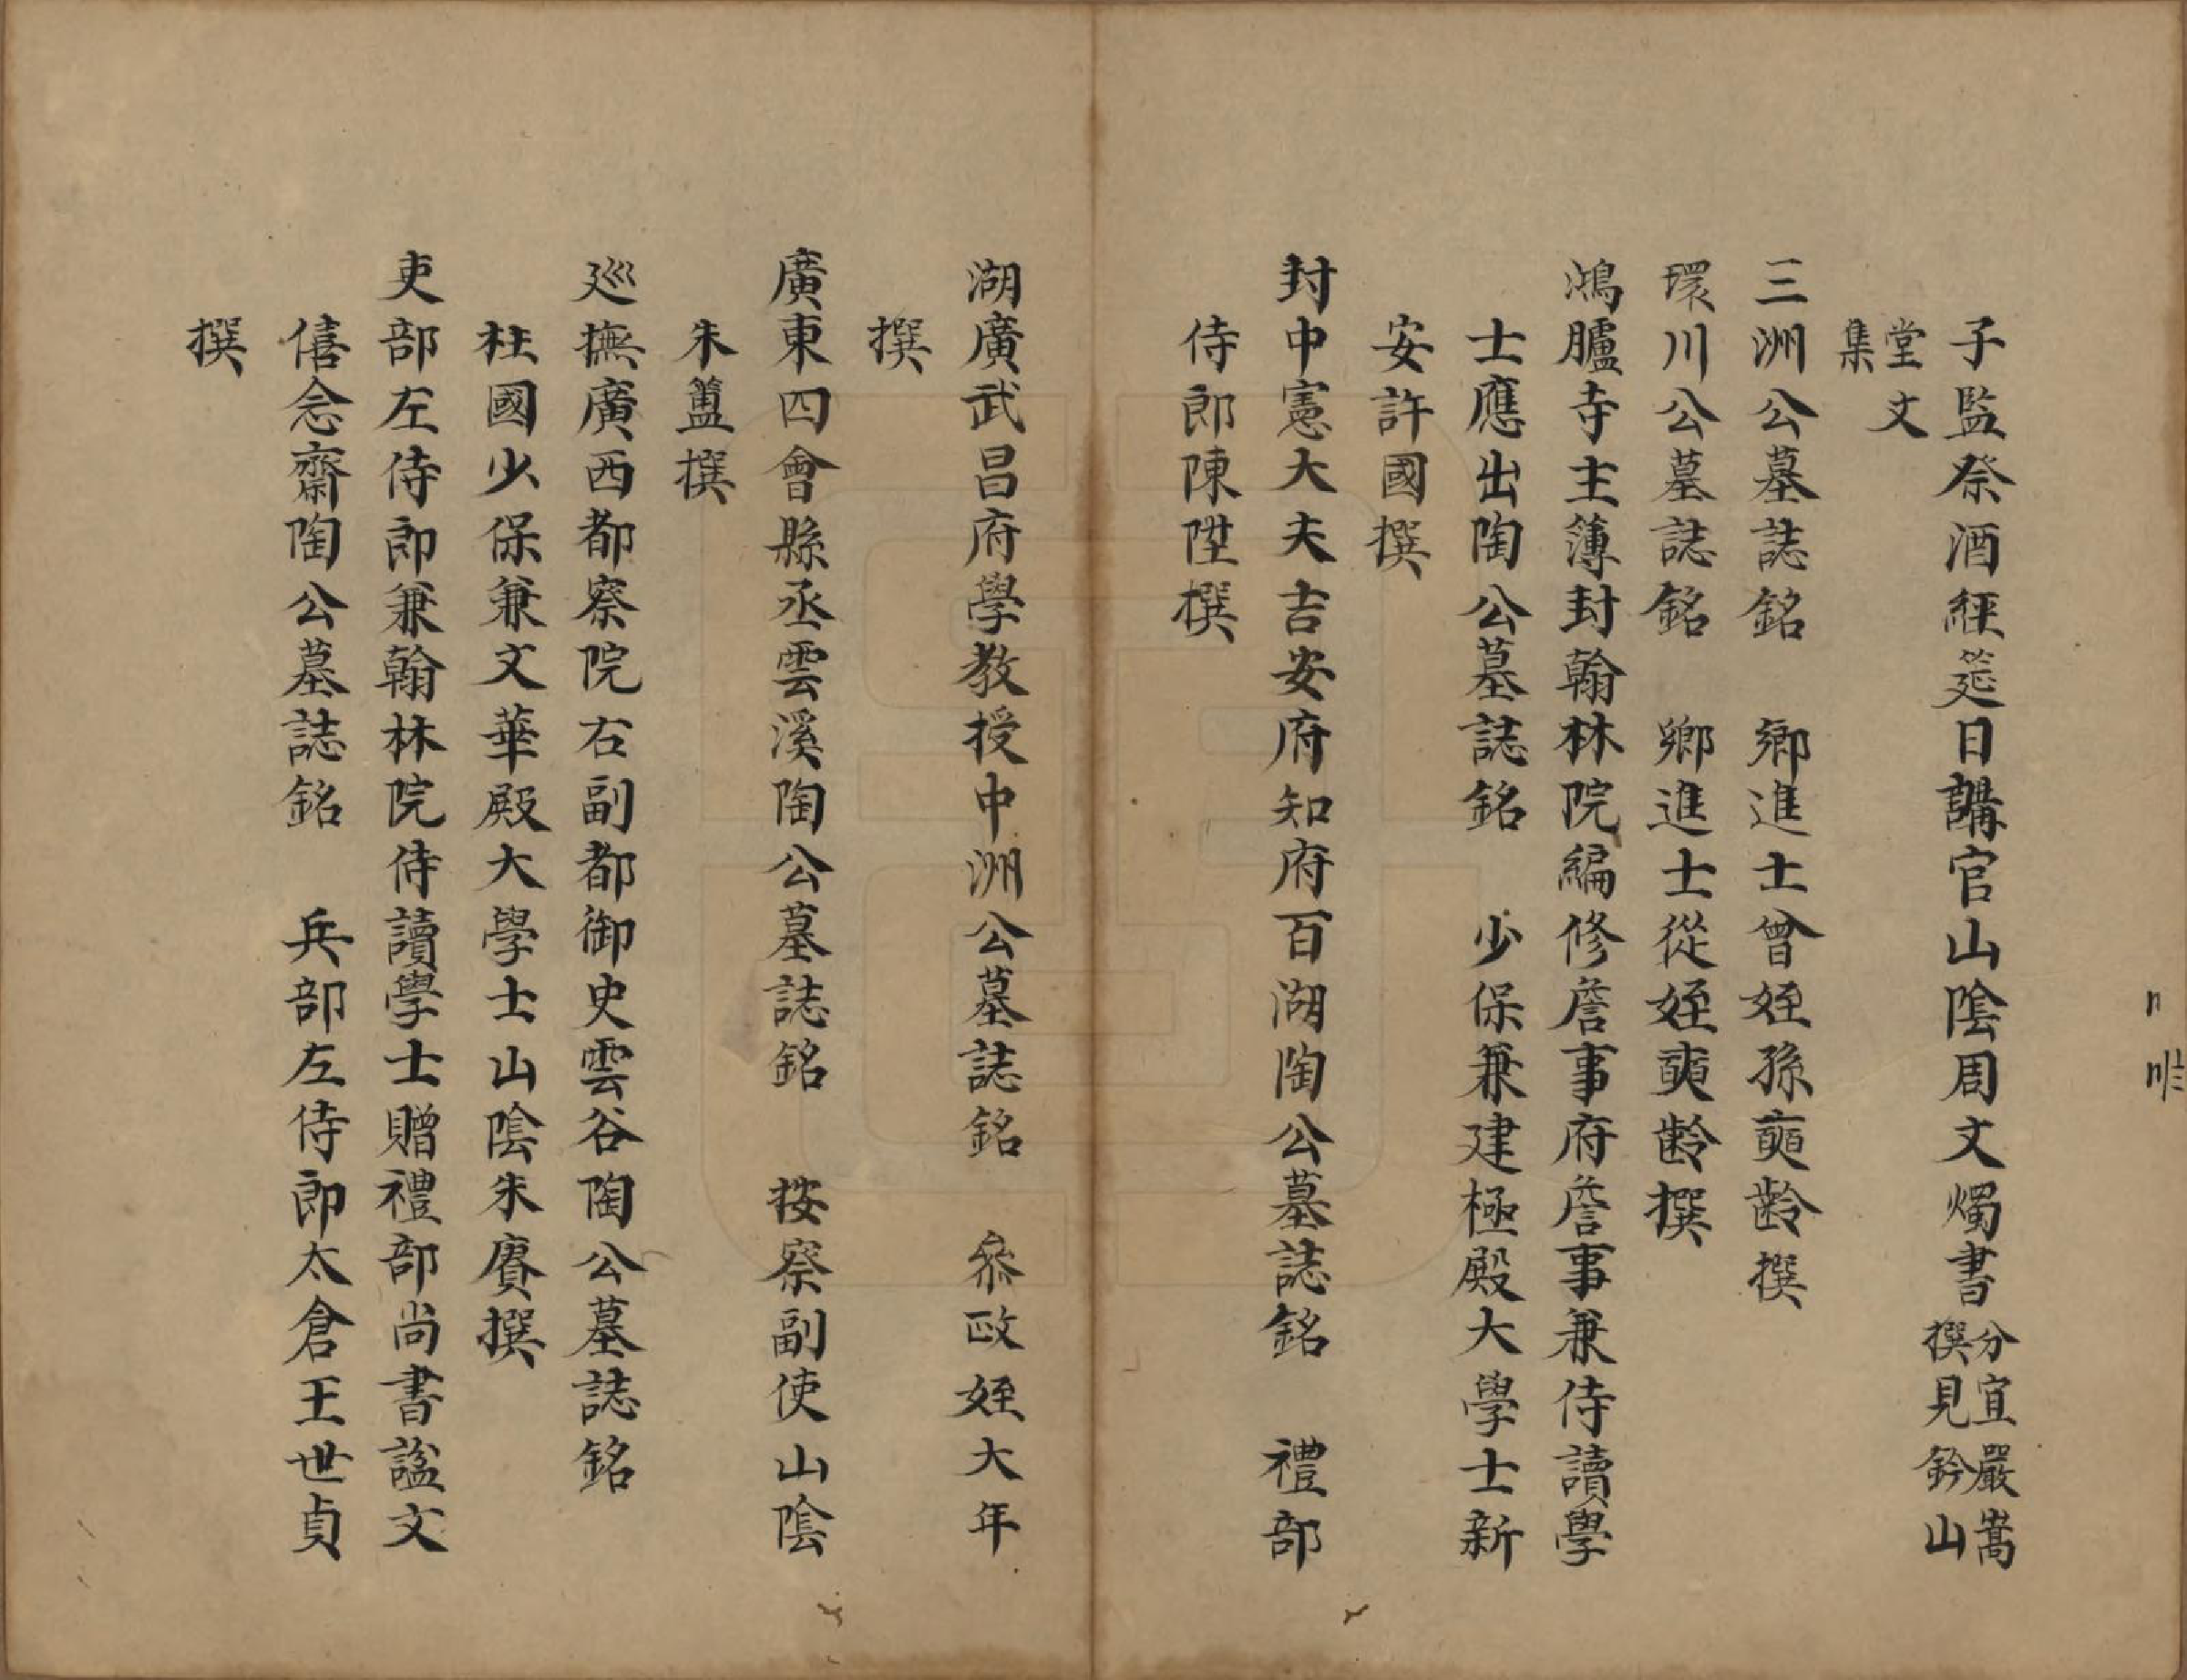 子監祭酒經筵日講官山陰周文燭書分宜嚴嵩撰見鈐山
堂文集
三洲公墓誌銘　鄉進士曾姪孫奭齡撰
環川公墓誌銘　鄉進士從姪奭齡撰
鴻臚寺主簿封翰林院編修詹事府詹事兼侍讀學
士應出陶公墓誌銘　少保兼建極殿大學士新
安許國撰
封中憲大夫吉安府知府百湖陶公墓誌銘　禮部
侍郎陳陞撰
湖廣武昌府學教授中洲公墓誌銘　叅政姪大年
撰
廣東四會縣丞雲溪陶公墓誌銘　按察副使山陰
朱簠撰
巡撫廣西都察院右副都御史雲谷陶公墓誌銘
柱國少保兼文華殿大學士山陰朱賡撰
吏部左侍郎兼翰林院侍讀學士贈禮部尚書諡文
僖念齋陶公墓誌銘　兵部左侍郎太倉王世貞
撰